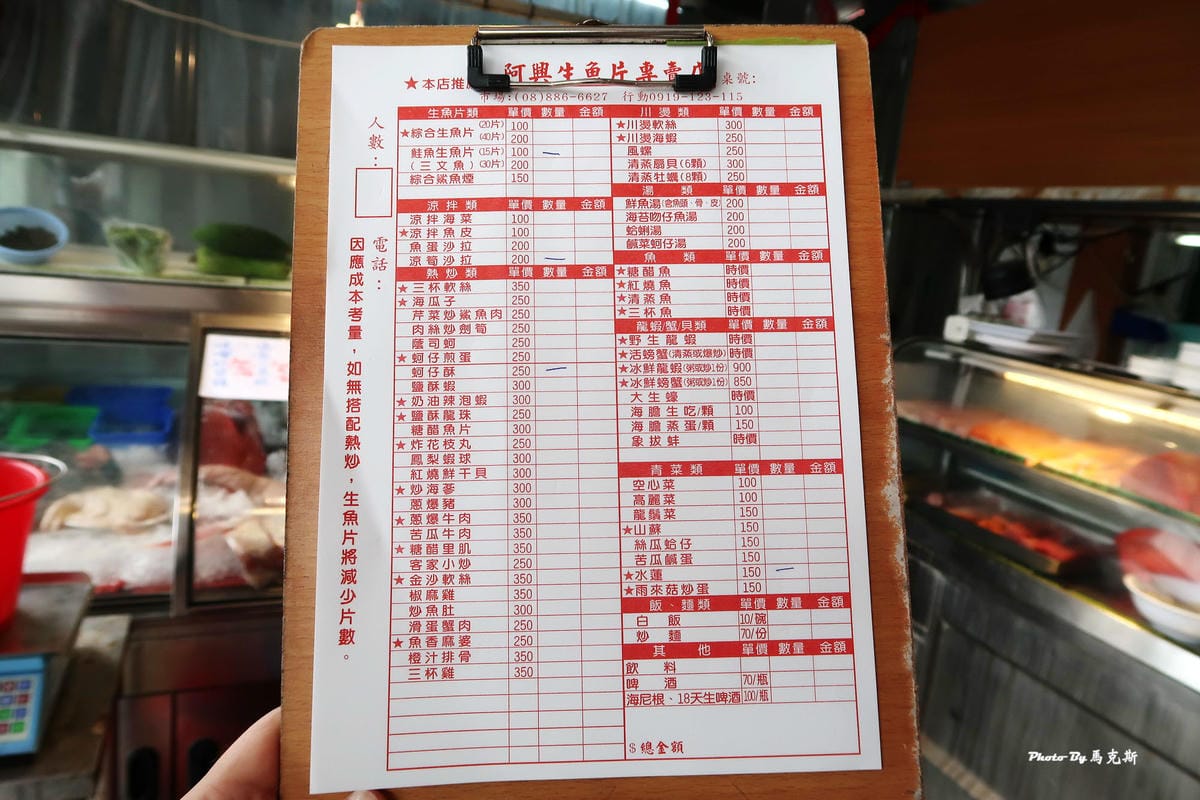 阿興生魚片專賣店
★本店推
桌號:
市場:(08)886-6627 行動0919-123-115
人數:
電話:
因應成本考量，如無搭配熱炒，生魚片將減少片數。
生魚片類 單價 數量 金額
★綜合生魚片 (20片) 100
(40片) 200
鮭魚生魚片 (15片) 100
(三文魚) (30片) 200
綜合鯊魚煙 150
涼拌類 單價 數量 金額
涼拌海菜 100
★涼拌魚皮 100
魚蛋沙拉 200
涼筍沙拉 200
熱炒類 單價 數量 金額
★三杯軟絲 350
★海瓜子 250
芹菜炒鯊魚肉 250
肉絲炒劍筍 250
蔭司蚵 250
★蚵仔煎蛋 250
蚵仔酥 250
鹽酥蝦 300
★奶油辣泡蝦 300
★鹽酥龍珠 300
糖醋魚片 300
★炸花枝丸 250
鳳梨蝦球 300
紅燒鮮干貝 300
★炒海蔘 300
蔥爆豬 300
★蔥爆牛肉 350
苦瓜牛肉 350
★糖醋里肌 350
客家小炒 350
★金沙軟絲 350
椒麻雞 350
炒魚肚 300
滑蛋蟹肉 250
★魚香麻婆 250
橙汁排骨 350
三杯雞 350
川燙類 單價 數量 金額
★川燙軟絲 300
★川燙海蝦 250
風螺 250
清蒸扇貝(6顆) 300
清蒸牡蠣(8顆) 250
湯類 單價 數量 金額
鮮魚湯(含魚頭、骨、皮) 200
海苔吻仔魚湯 200
蛤蜊湯 200
鹹菜蚵仔湯 200
魚類 單價 數量 金額
★糖醋魚 時價
★紅燒魚 時價
★清蒸魚 時價
★三杯魚 時價
龍蝦/蟹/貝類 單價 數量 金額
★野生龍蝦 時價
★活螃蟹(清蒸或爆炒) 時價
★冰鮮龍蝦(粥或炒1份) 900
★冰鮮螃蟹(粥或炒1份) 850
大生蠔 時價
海膽生吃/顆 100
海膽蒸蛋/顆 150
象拔蚌 時價
青菜類 單價 數量 金額
空心菜 100
高麗菜 100
龍鬚菜 150
★山蘇 150
絲瓜蛤仔 150
苦瓜鹹蛋 150
★水蓮 150
★雨來菇炒蛋 150
飯、麵類 單價 數量 金額
白飯 10/碗
炒麵 70/份
其他 單價 數量 金額
飲料
啤酒 70/瓶
海尼根、18天生啤酒 100/瓶
$總金額
Photo By 馬克斯